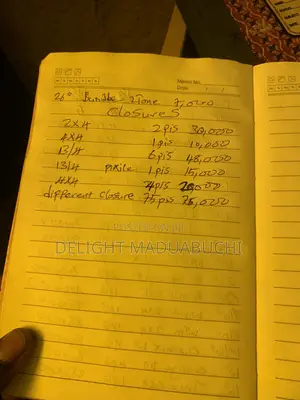 20" Bundle 2Tone 7,0000
Closures
2x4 2pis 30,0000
4x4 1pis 10,0000
13/4 6pis 48,0000
13/4 pixile 1pis 15,0000
4x4 4pis 20,000
different closure 75pis 25,0000
DELIGHT MADUABUCHI